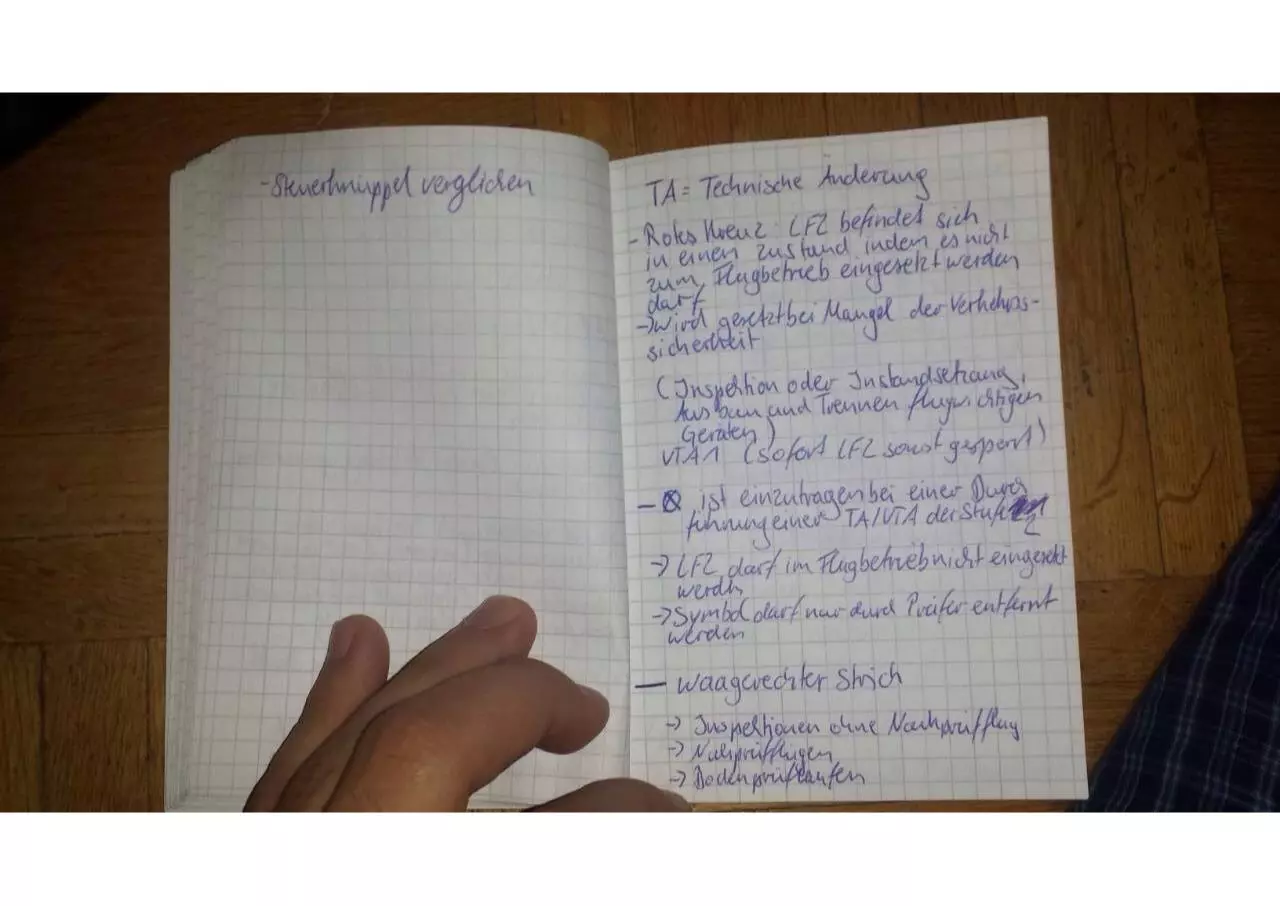 - Steuerknüppel verglichen
TA = Technische Änderung
- Rotes Kreuz: LFZ befindet sich
in einen Zustand indem es nicht
zum Flugbetrieb eingesetzt werden
darf
→ wird gesetzt bei Mangel der Verkehrs-
sicherheit
(Inspektion oder Instandsetzung,
Ausbau und Trennen flugwichtigen
Geräten)
VTA 1 (sofort LFZ sonst gesperrt)
- ⊗ ist einzutragen bei einer Durch
führung einer TA/VTA der Stufe 2
→ LFZ darf im Flugbetrieb nicht eingesetzt
werden
→ Symbol darf nur durch Prüfer entfernt
werden
— waagerechter Strich
→ Inspektionen ohne Nachprüfflug
→ Nachprüfflügen
→ Bodenprüfläufen